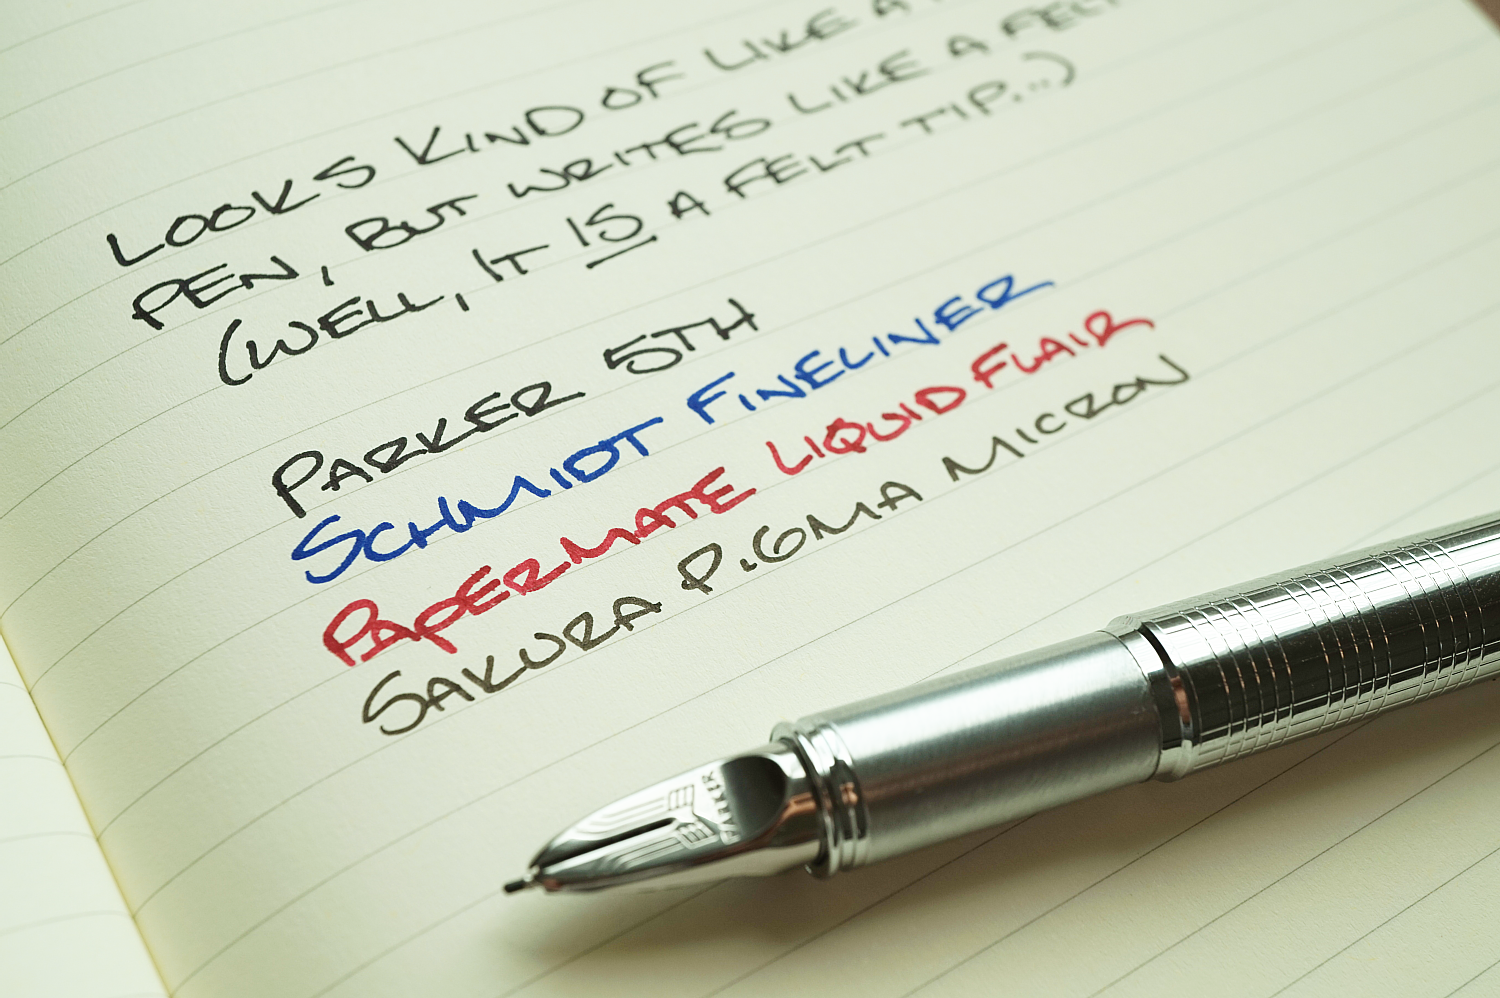 LOOKS KIND OF LIKE A
PEN, BUT WRITES LIKE A FELT
(WELL, IT IS A FELT TIP...)
PARKER 5TH
SCHMIDT FINELINER
PAPERMATE LIQUID FLAIR
SAKURA PIGMA MICRON
PARKER